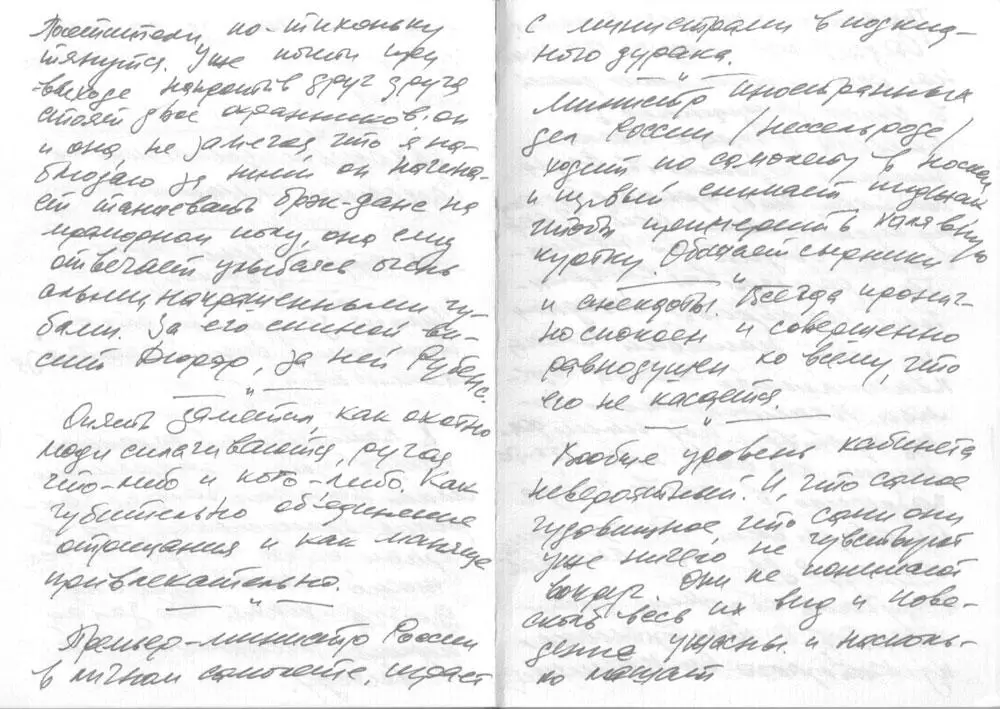 Посетители по-тихоньку
тянутся. Уже почти при
выходе напротив друг друга
стоят двое охранников: он
и она, не замечая что я на-
блюдаю за ними он начина-
ет танцевать брэк-данс на
мраморном полу, она ему
отвечает улыбаясь очень
алыми накрашенными гу-
бами. За его спиной ви-
сит Дюрер, за ней Рубенс.
— " —
Опять заметил, как охотно
люди сплачиваются, ругая
что-либо и кого-либо. Как
губительно объединение
отрицания и как маняще
привлекательно.
— " —
Премьер-министр России
в личном самолете играет
с министрами в подкид-
ного дурака.
— " —
Министр иностранных
дел России /Нессельроде/
ходит по самолету в носках
и первый снимает пиджак
чтобы примерить
куртку. Обещает сырники
— " —
и анекдоты. Всегда иронич-
но спокоен и совершенно
равнодушен ко всему, что
его не касается.
— " —
Вообще уровень кабинета
невероятный. И, что самое
чудовищное, что сами они
уже ничего не чувствуют
вокруг. Они не понимают
весь их вид и пове-
дение ужасны и насколь-
ко